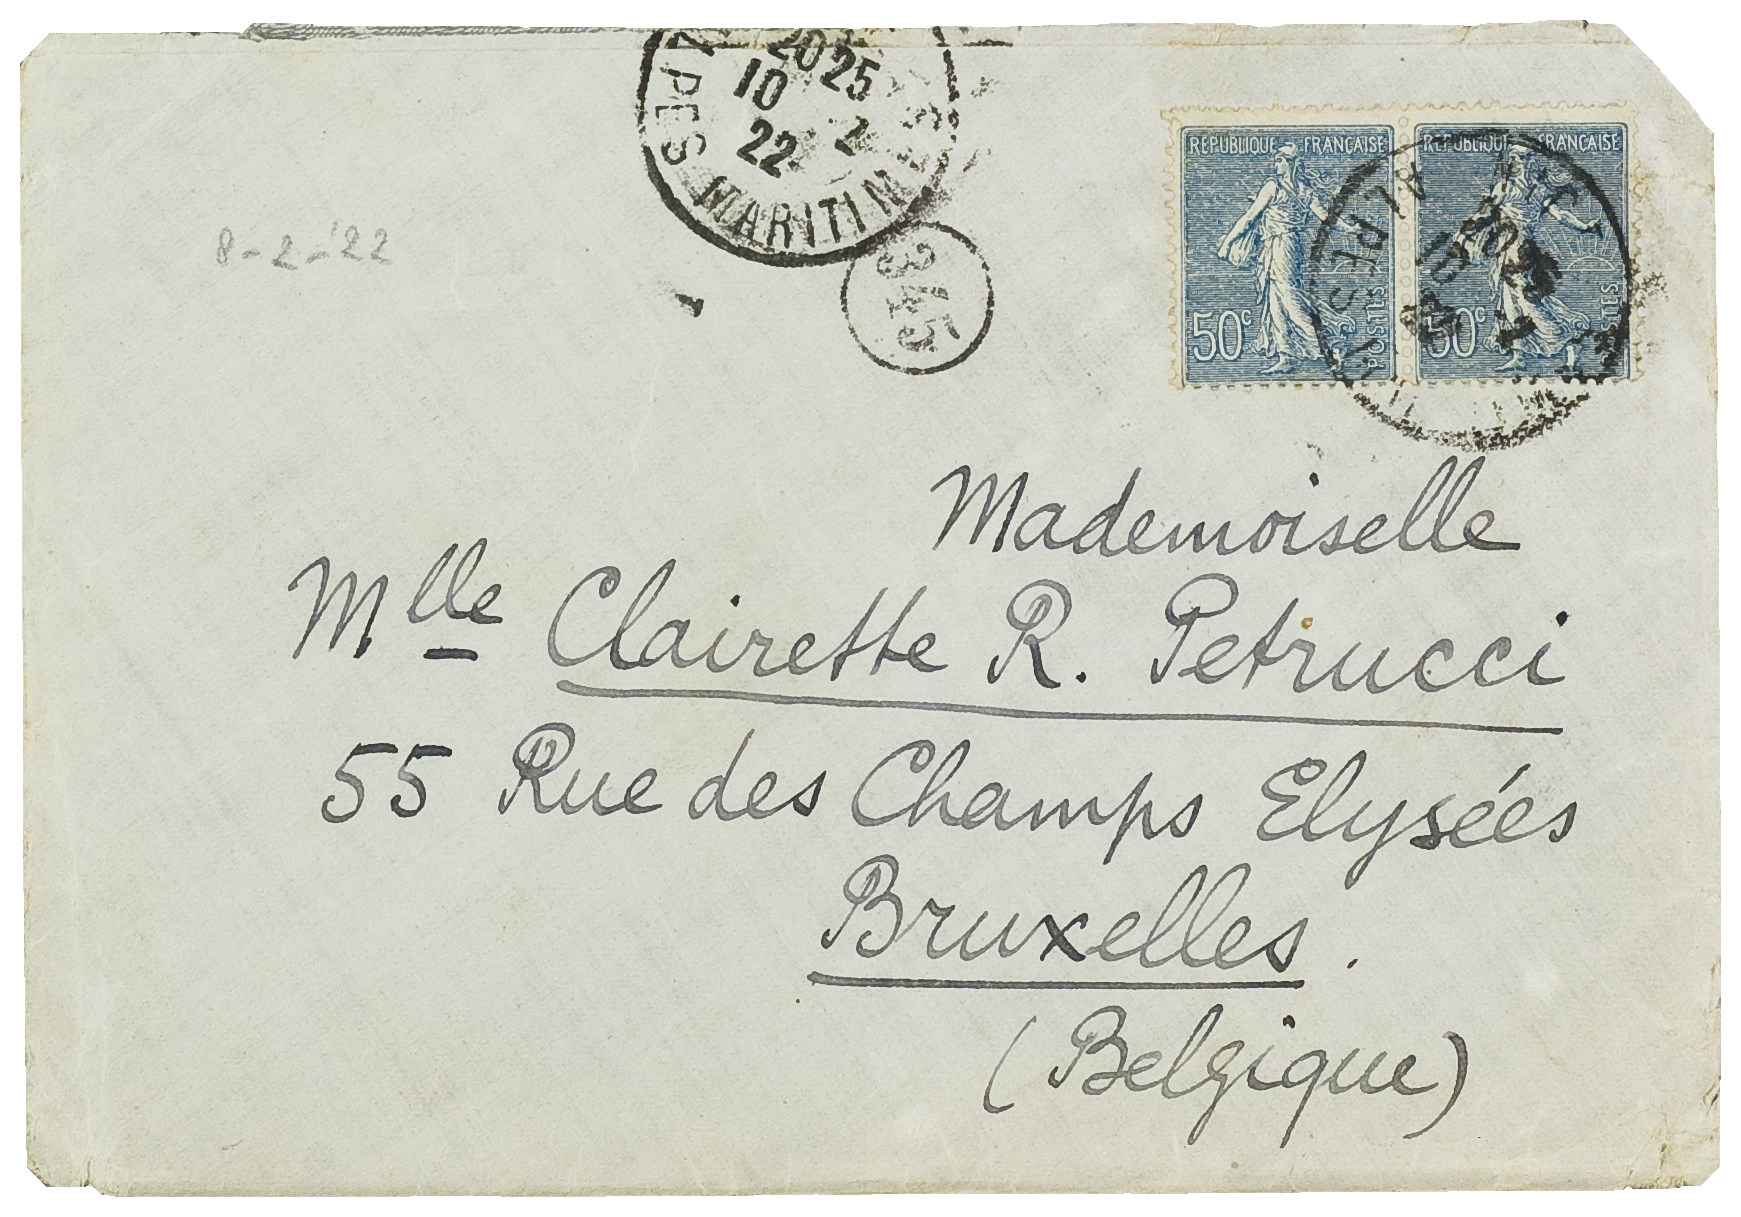 2025
10 2
22
ALPES MARITIMES
345
8-2-'22
REPUBLIQUE FRANÇAISE
50c
POSTES
REPUBLIQUE FRANÇAISE
50c
POSTES
NICE
2025
10 2
22
ALPES
Mademoiselle
Mlle Clairette R. Petrucci
55 Rue des Champs Elysées
Bruxelles.
(Belgique)